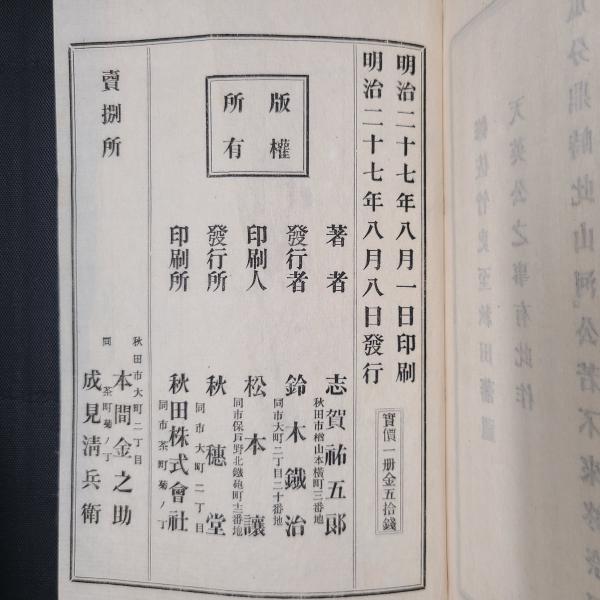 明治二十七年八月一日印刷
明治二十七年八月八日發行
實價一册金五拾錢
版權
所有
著者
秋田市楢山本橫町三番地
志賀祐五郎
發行者
同市大町二丁目二十番地
鈴木鐵治
印刷人
同市保戸野北鐵砲町十二番地
松本讓
發行所
同市大町二丁目
秋穗堂
印刷所
同市茶町菊ノ丁
秋田株式會社
賣捌所
秋田市大町二丁目
本間金之助
同 茶町菊ノ丁
成見淸兵衛